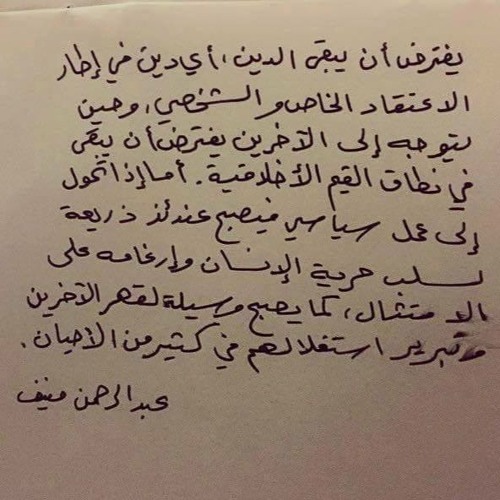 يفترض أن يبقى الدين، أي دين في إطار
الاعتقاد الخاص والشخصي، وحين
يتوجه إلى الآخرين يفترض أن يبقى
في نطاق القيم الأخلاقية. أما إذا تحول
إلى عمل سياسي فيصبح عندئذ ذريعة
لسلب حرية الإنسان وإرغامه على
الامتثال، كما يصبح وسيلة لقهر الآخرين
وتبرير استغلالهم في كثير من الأحيان.
عبد الرحمن منيف